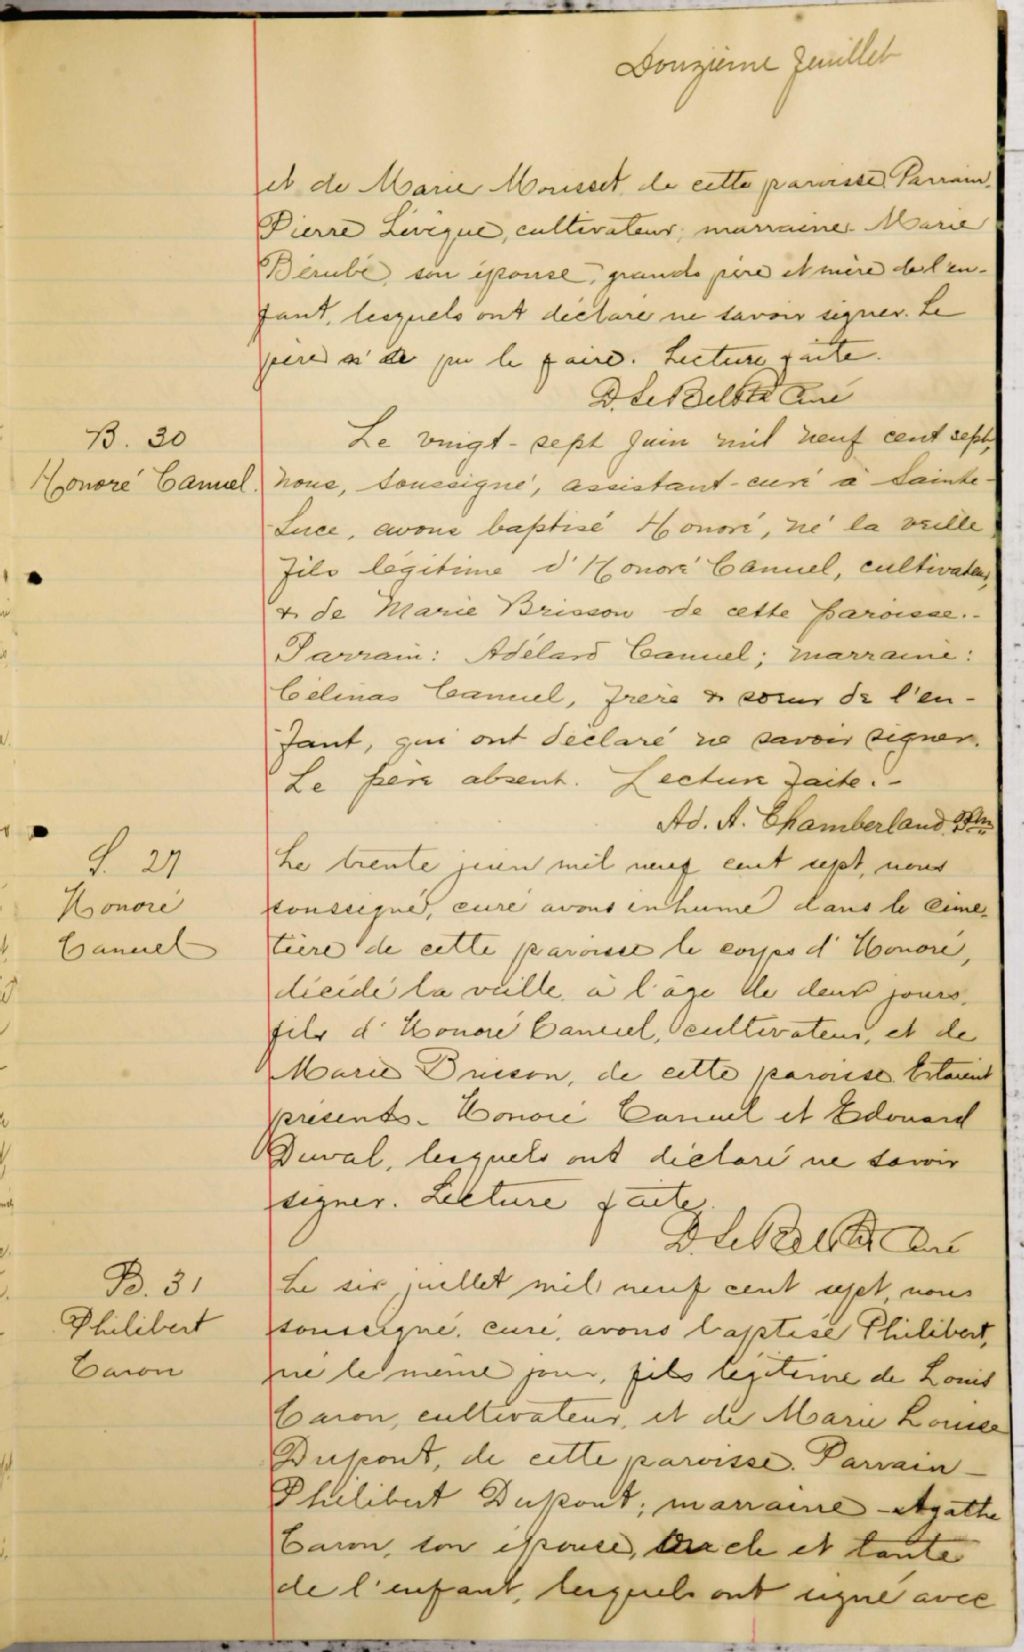 Douzième feuillet
et de Marie Mousset de cette paroisse. Parrain.
Pierre Lévêque, cultivateur; marraine - Marie
Bérubé, son épouse, grands père et mère de l'en-
fant, lesquels ont déclaré ne savoir signer. Le
père n'a pu le faire. Lecture faite.
D. LeBel Ptre Curé
B. 30
Honoré Canuel.
Le vingt-sept juin mil neuf cent sept,
nous, soussigné, assistant-curé à Sainte-
Luce, avons baptisé Honoré, né la veille
fils légitime d'Honoré Canuel, cultivateur,
& de Marie Brisson de cette paroisse.-
Parrain: Adélard Canuel; marraine:
Célinas Canuel, frère & sœur de l'en-
fant, qui ont déclaré ne savoir signer.
Le père absent. Lecture faite.-
Ad. A. Chamberland
S. 27
Honoré
Canuel
Le trente juin mil neuf cent sept, nous
soussigné, curé avons inhumé dans le cime-
tière de cette paroisse le corps d'Honoré,
décédé la veille à l'âge de deux jours,
fils d'Honoré Canuel, cultivateur, et de
Marie Brisson, de cette paroisse. Etaient
présents - Honoré Canuel et Edouard
Duval, lesquels ont déclaré ne savoir
signer. Lecture faite.
D. LeBel Ptre Curé
B. 31
Philibert
Caron
Le six juillet mil neuf cent sept, nous
soussigné, curé, avons baptisé Philibert,
né le même jour, fils légitime de Louis
Caron, cultivateur, et de Marie Louise
Dupont, de cette paroisse. Parrain -
Philibert Dupont; marraine - Agathe
Caron, son épouse, oncle et tante
de l'enfant, lesquels ont signé avec